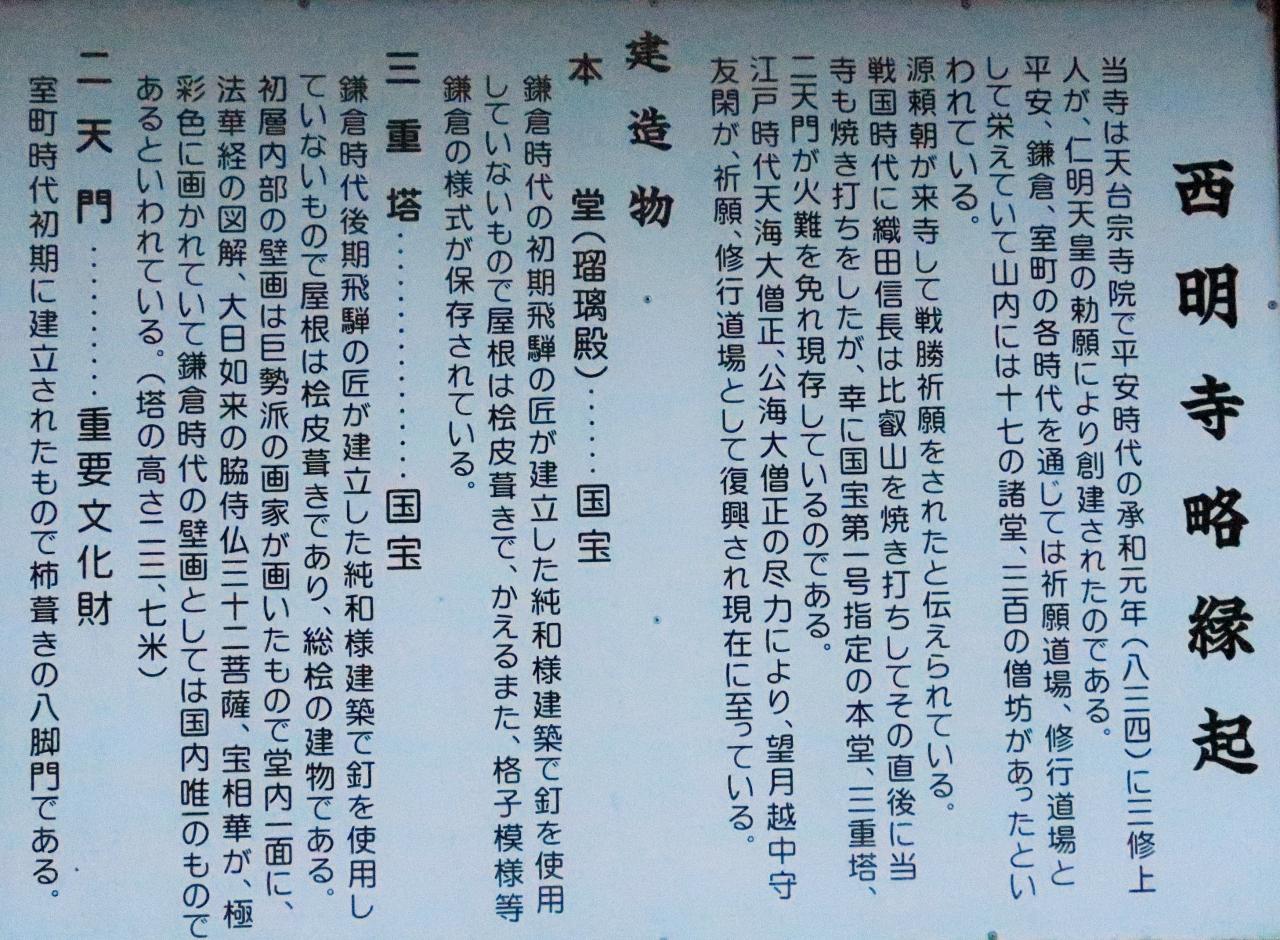 西明寺略縁起
当寺は天台宗寺院で平安時代の承和元年（八三四）に三修上
人が、仁明天皇の勅願により創建されたのである。
平安、鎌倉、室町の各時代を通じては祈願道場、修行道場と
して栄えていて山内には十七の諸堂、三百の僧坊があったとい
われている。
源頼朝が来寺して戦勝祈願をされたと伝えられている。
戦国時代に織田信長は比叡山を焼き打ちしてその直後に当
寺も焼き打ちをしたが、幸に国宝第一号指定の本堂、三重塔、
二天門が火難を免れ現存しているのである。
江戸時代天海大僧正、公海大僧正の尽力により、望月越中守
友閑が、祈願、修行道場として復興され現在に至っている。
建造物
本堂（瑠璃殿）……国宝
鎌倉時代の初期飛騨の匠が建立した純和様建築で釘を使用
していないもので屋根は桧皮葺きで、かえるまた、格子模様等
鎌倉の様式が保存されている。
三重塔…………国宝
鎌倉時代後期飛騨の匠が建立した純和様建築で釘を使用し
ていないもので屋根は桧皮葺きであり、総桧の建物である。
初層内部の壁画は巨勢派の画家が画いたもので堂内一面に、
法華経の図解、大日如来の脇侍仏三十二菩薩、宝相華が、極
彩色に画かれていて鎌倉時代の壁画としては国内唯一のもので
あるといわれている。（塔の高さ二三、七米）
二天門………重要文化財
室町時代初期に建立されたもので柿葺きの八脚門である。